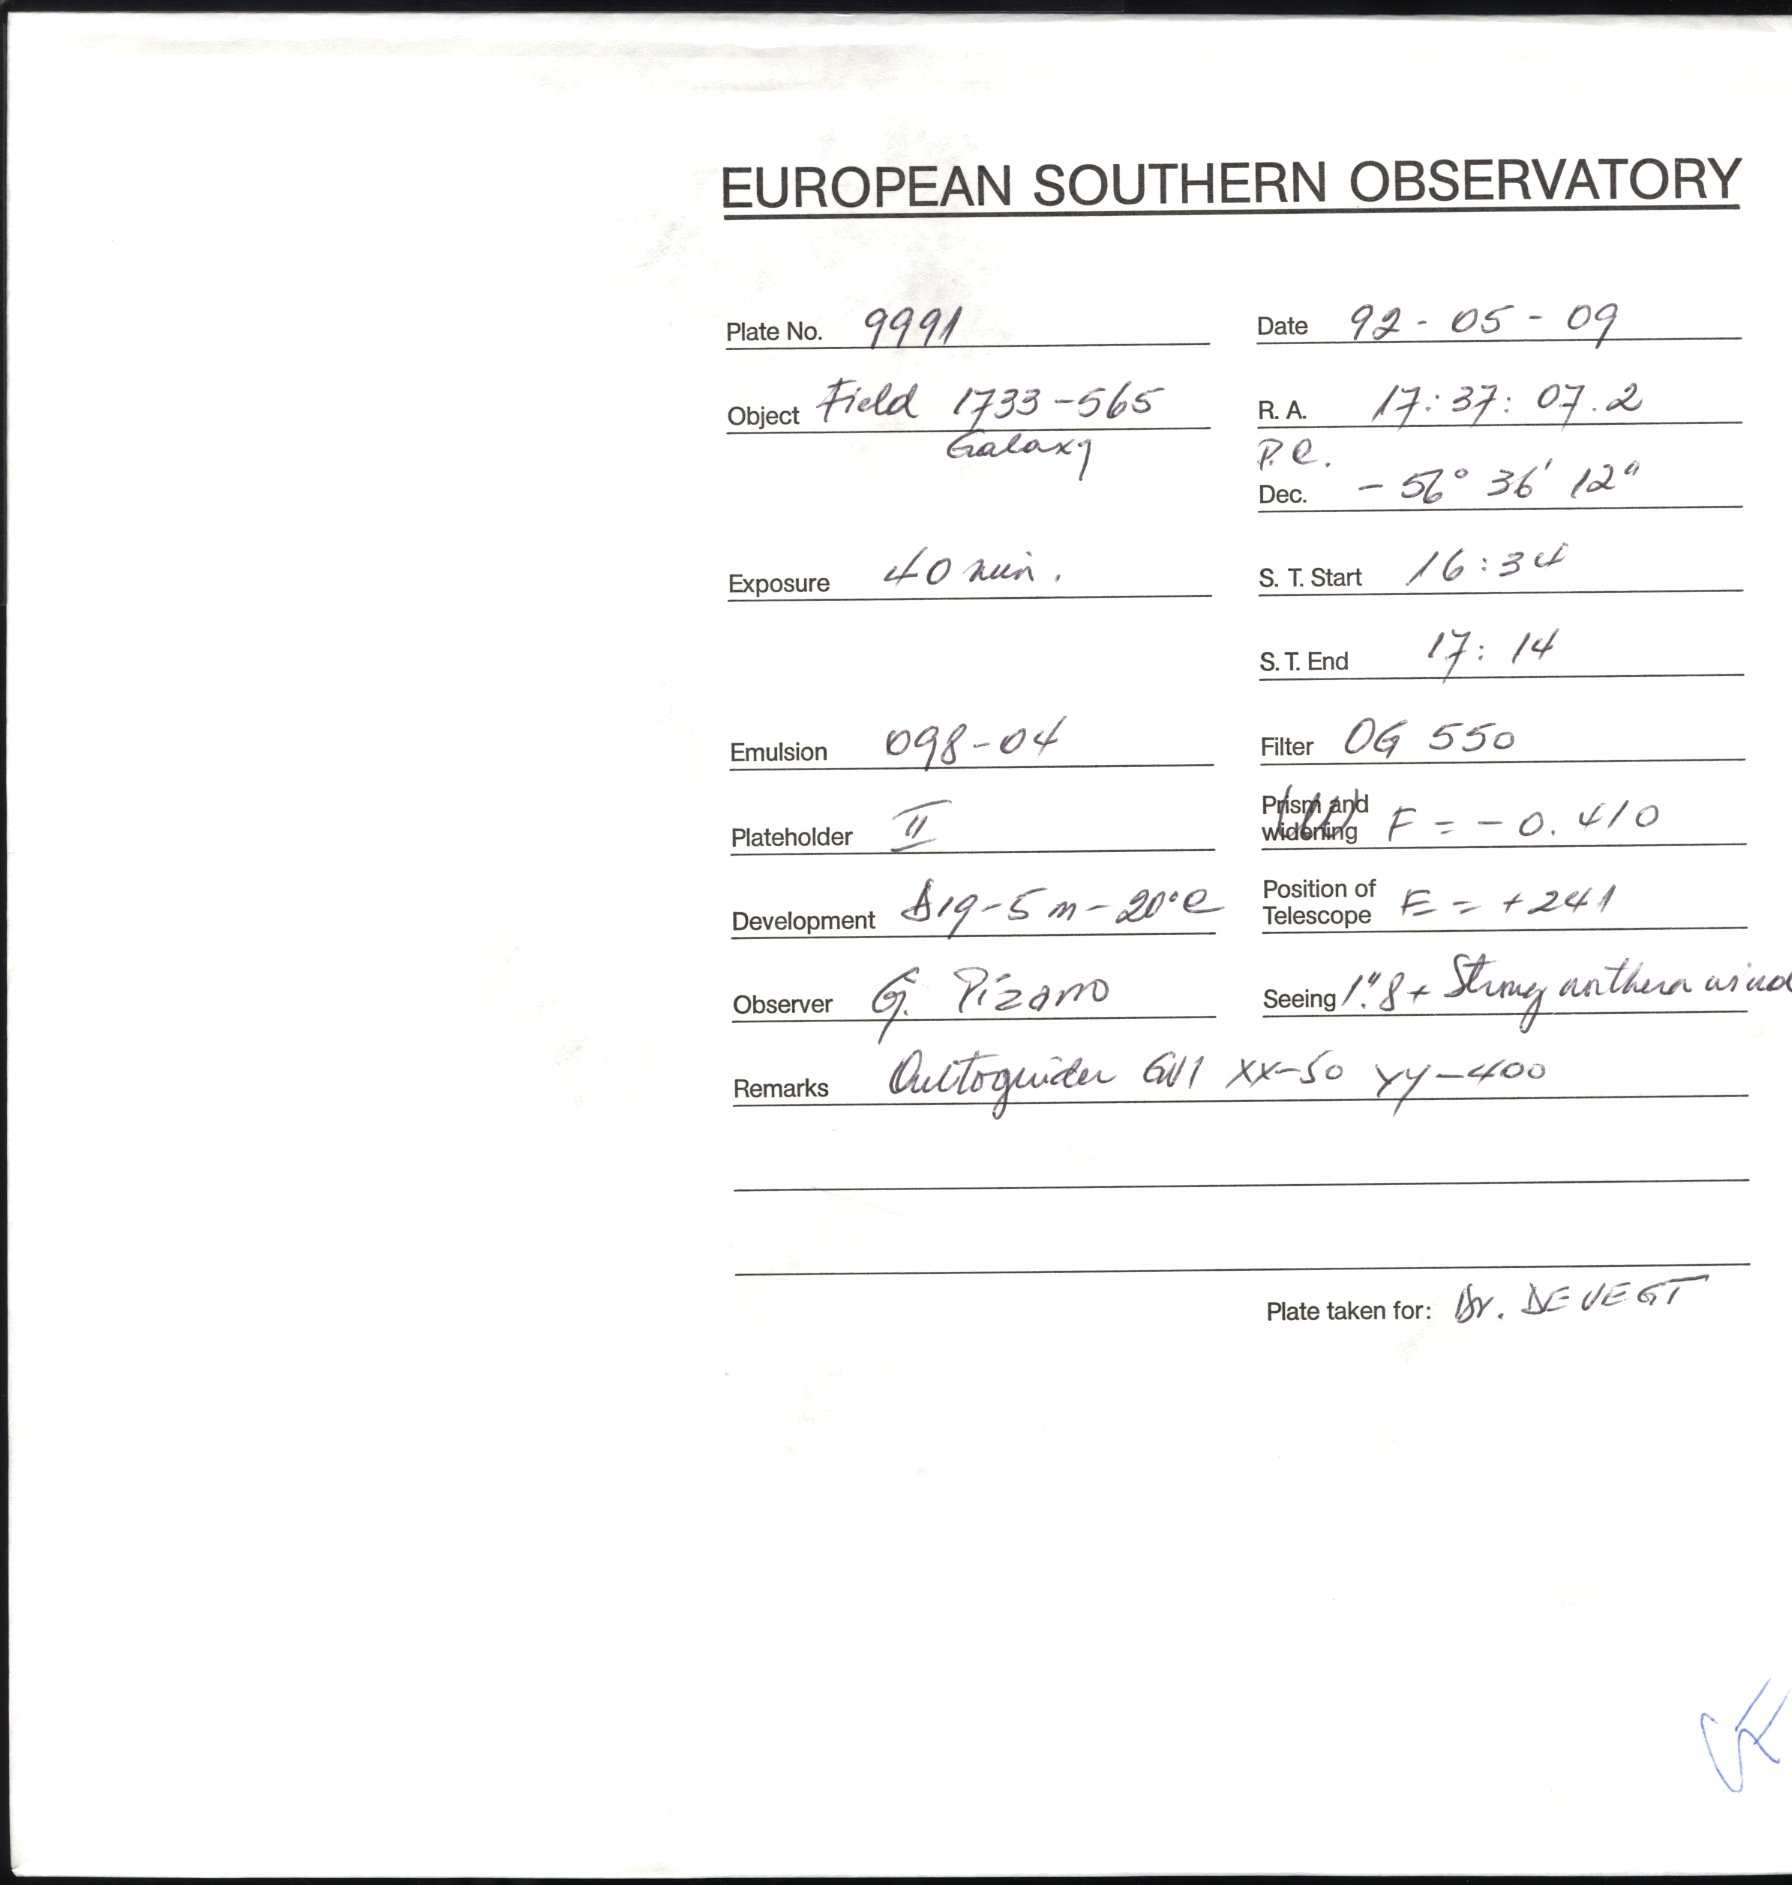 EUROPEAN SOUTHERN OBSERVATORY
Plate No. 9991 Date 92 - 05 - 09
Object Field 1733-565 R. A. 17: 37: 07.2
Galaxy P.C.
Dec. - 56° 36' 12"
Exposure 40 min. S. T. Start 16:34
S. T. End 17: 14
Emulsion 098-04 Filter OG 550
Plateholder II Prism and widening F = - 0.410
Development D19-5m-20°C Position of Telescope E = +241
Observer G. Pizarro Seeing 1."8+ Strong northern wind
Remarks Autoguider GV1 XX-50 YY-400
Plate taken for: Dr. DE VEGT